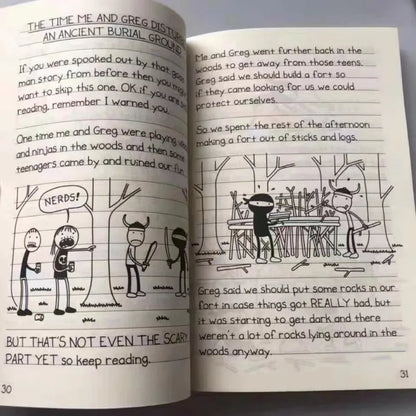 THE TIME ME AND GREG DISTURB
AN ANCIENT BURIAL GROUND
If you were spooked out by that
man story from before then you might
want to skip this one. OK if you are
reading, remember I warned you.
One time me and Greg were playing
and ninjas in the woods and then some
teenagers came by and ruined our fun.
NERDS!
BUT THAT'S NOT EVEN THE SCARY
PART YET so keep reading.
30
Me and Greg went further back in the
woods to get away from those teens.
Greg said we should build a fort so
if they came looking for us we could
protect ourselves.
So we spent the rest of the afternoon
making a fort out of sticks and logs.
Greg said we should put some rocks in our
fort in case things got REALLY bad, but
it was starting to get dark and there
weren't a lot of rocks lying around in the
woods anyway.
31